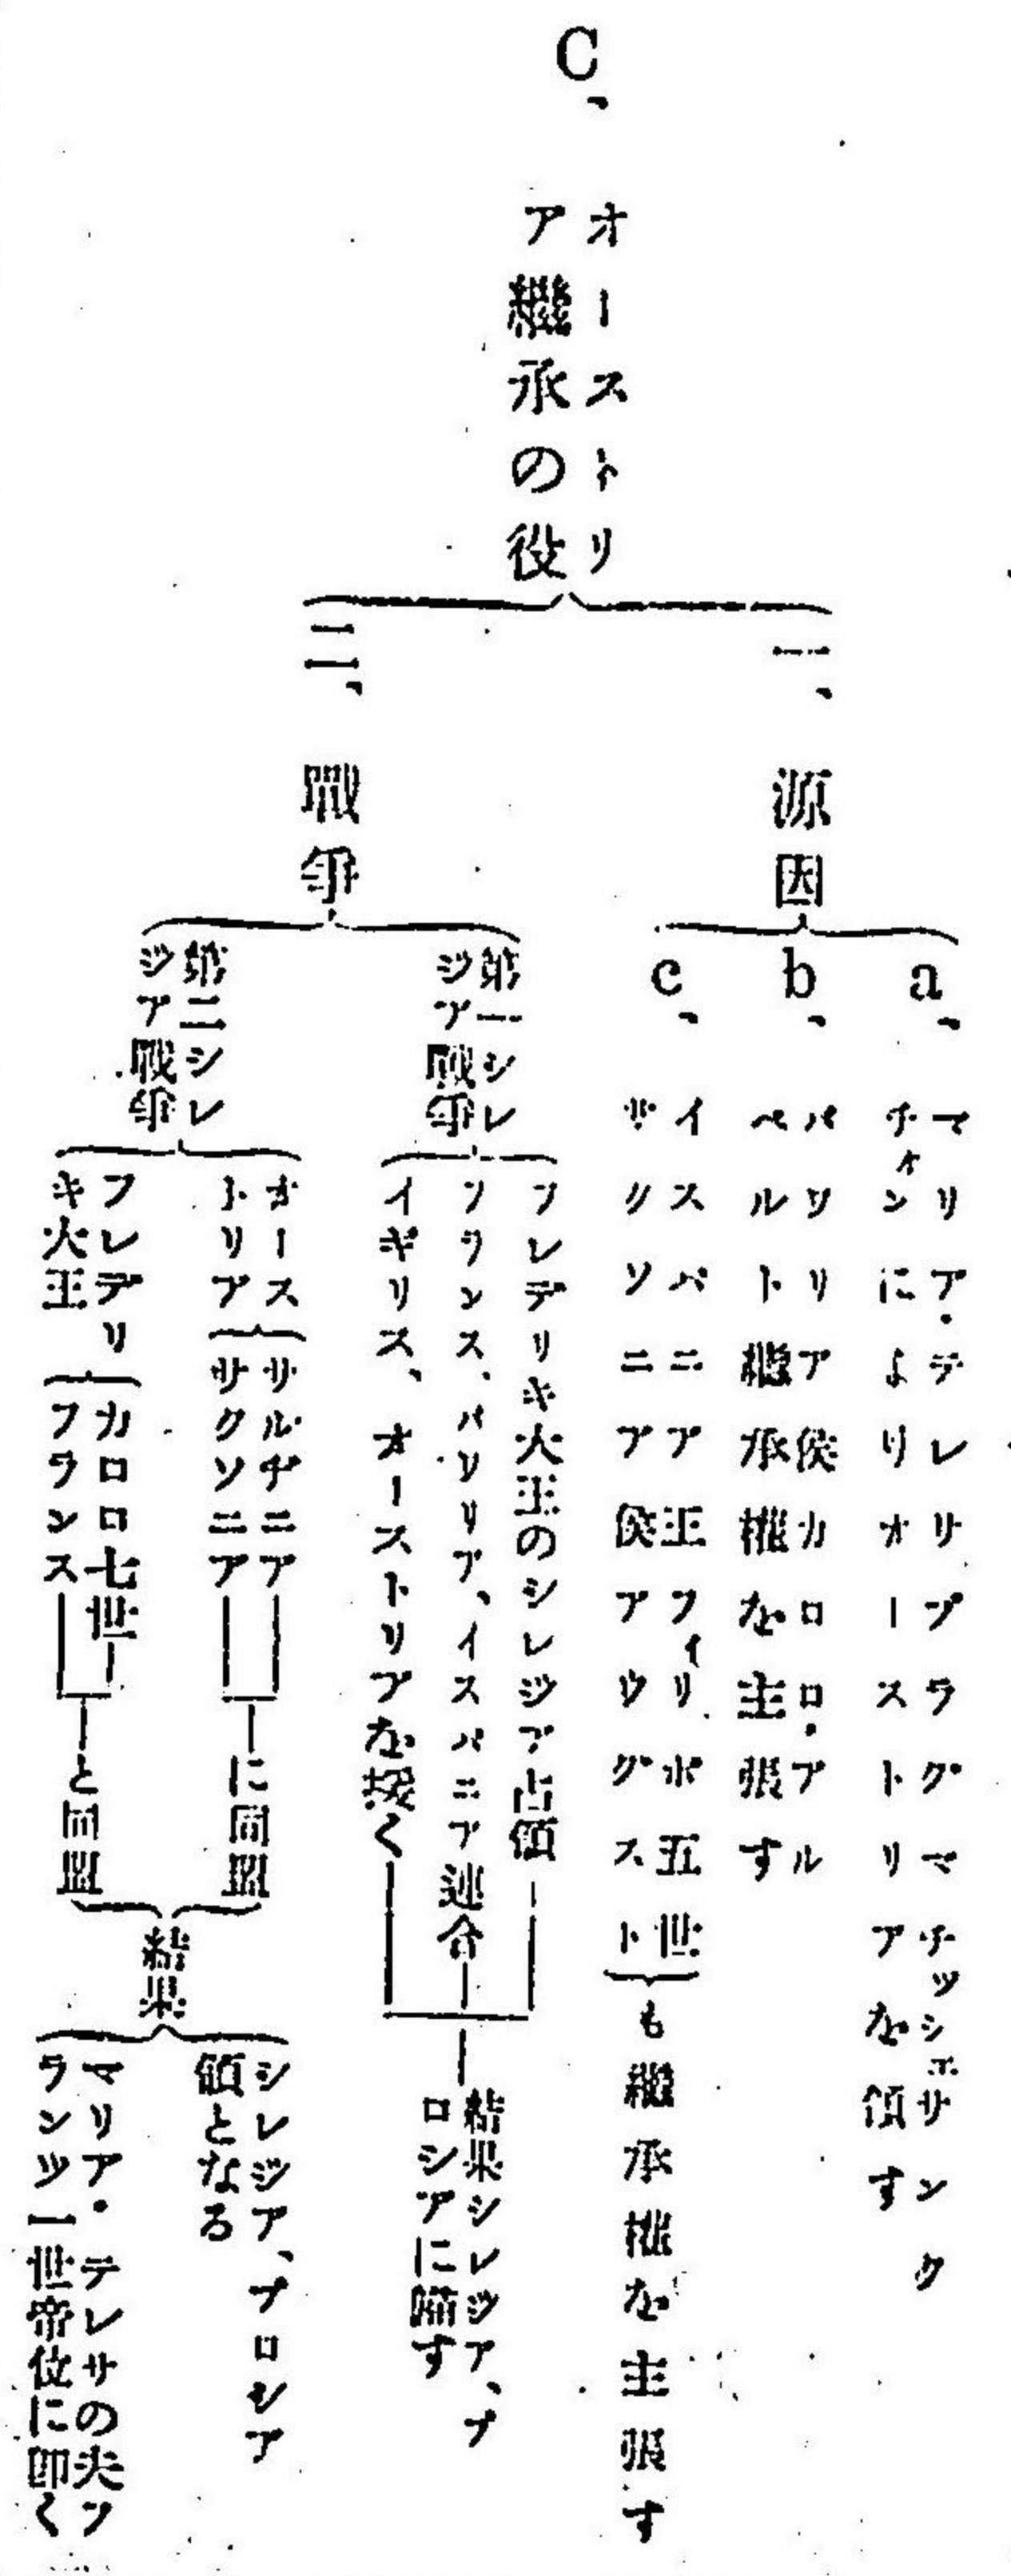 C、
オーストリ
ア繼承の役
一、源因
a、
マリア・テレサプラグマチッシェサンク
チォンによりオーストリアを領す
b、
バワリア侯カロロ・アル
ベルト繼承權を主張す
c、
イスパニア王フィリポ五世
サクソニア侯アウグスト
も繼承權を主張す
二、戰爭
第一シレ
ジア戰爭
フレデリキ大王のシレジア占領
フランス、バワリア、イスパニア連合
イギリス、オーストリアを援く
結果シレジア、プ
ロシアに歸す
第二シレ
ジア戰爭
オース
トリア
サルヂニア
サクソニア
に同盟
フレデリ
キ大王
カロロ七世
フランス
と同盟
結果
シレジア、プロシア
領となる
マリア・テレサの夫フ
ランツ一世帝位に卽く